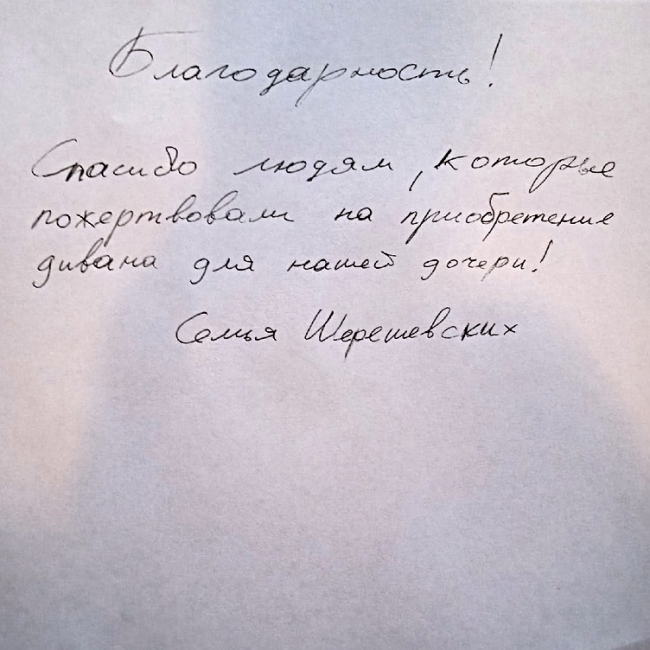 Благодарность!
Спасибо людям, которые
пожертвовали на приобретение
дивана для нашей дочери!
Семья Шерешевских